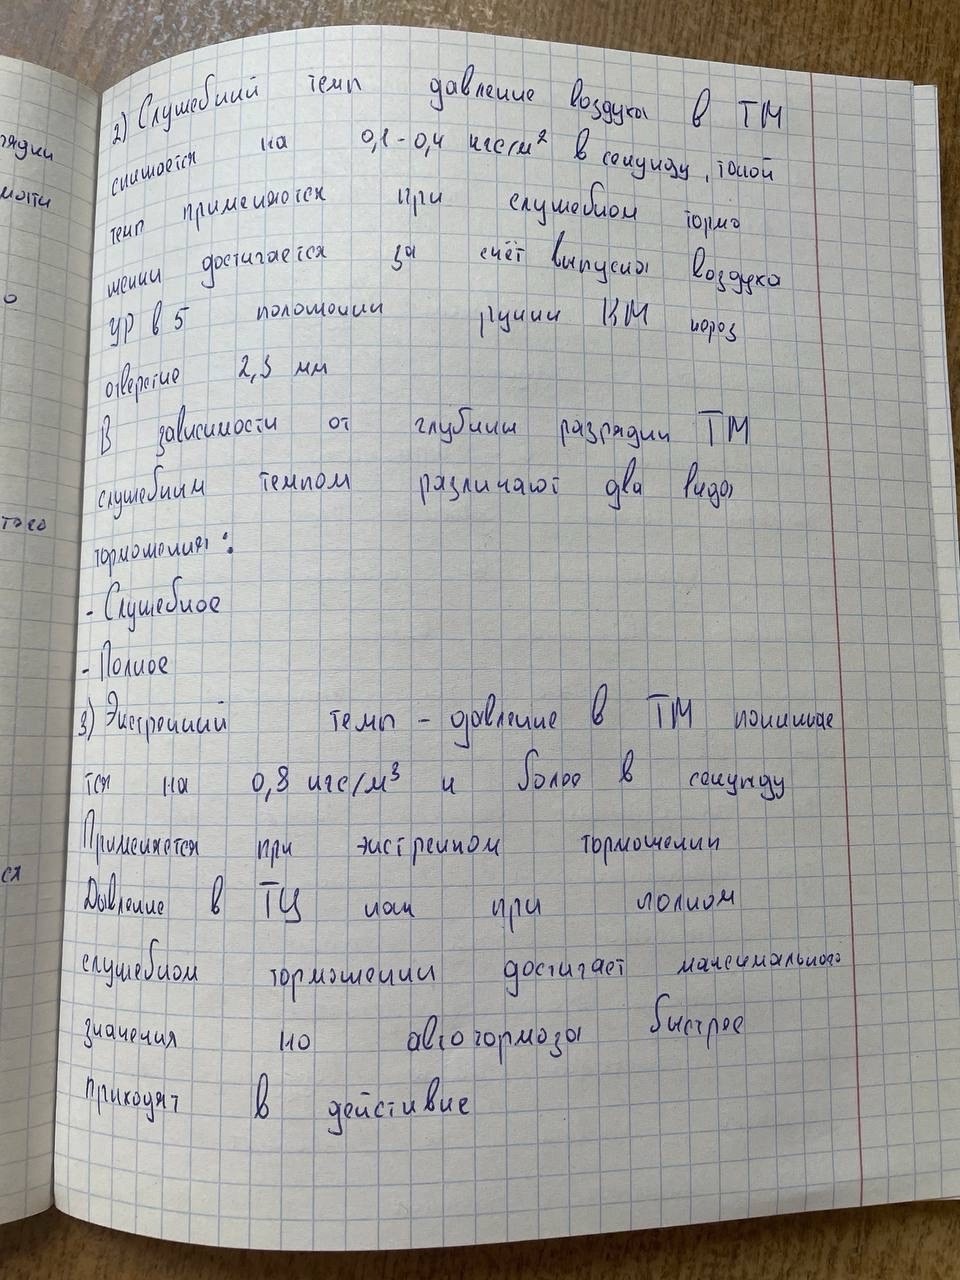 2) Служебний темп давление воздуха в ТМ
снижается на 0,1-0,4 кгс/м² в секунду, такой
темп применяются при служебном тормо
жении достигается за счёт выпуска воздуха
УР в 5 положении ручки КМ через
отверстие 2,3 мм
В зависимости от глубины разрядки ТМ
служебным темпом различают два вида
торможения:
- Служебное
- Полное
3) Экстренний темп - давление в ТМ понижае
тся на 0,8 кгс/м³ и более в секунду
Применяется при экстренном торможении
Давление в ТЦ как при полном
служебном торможении достигает максимального
значения но автотормоза быстрее
приходят в действие
рядки
мости
о
того
ся